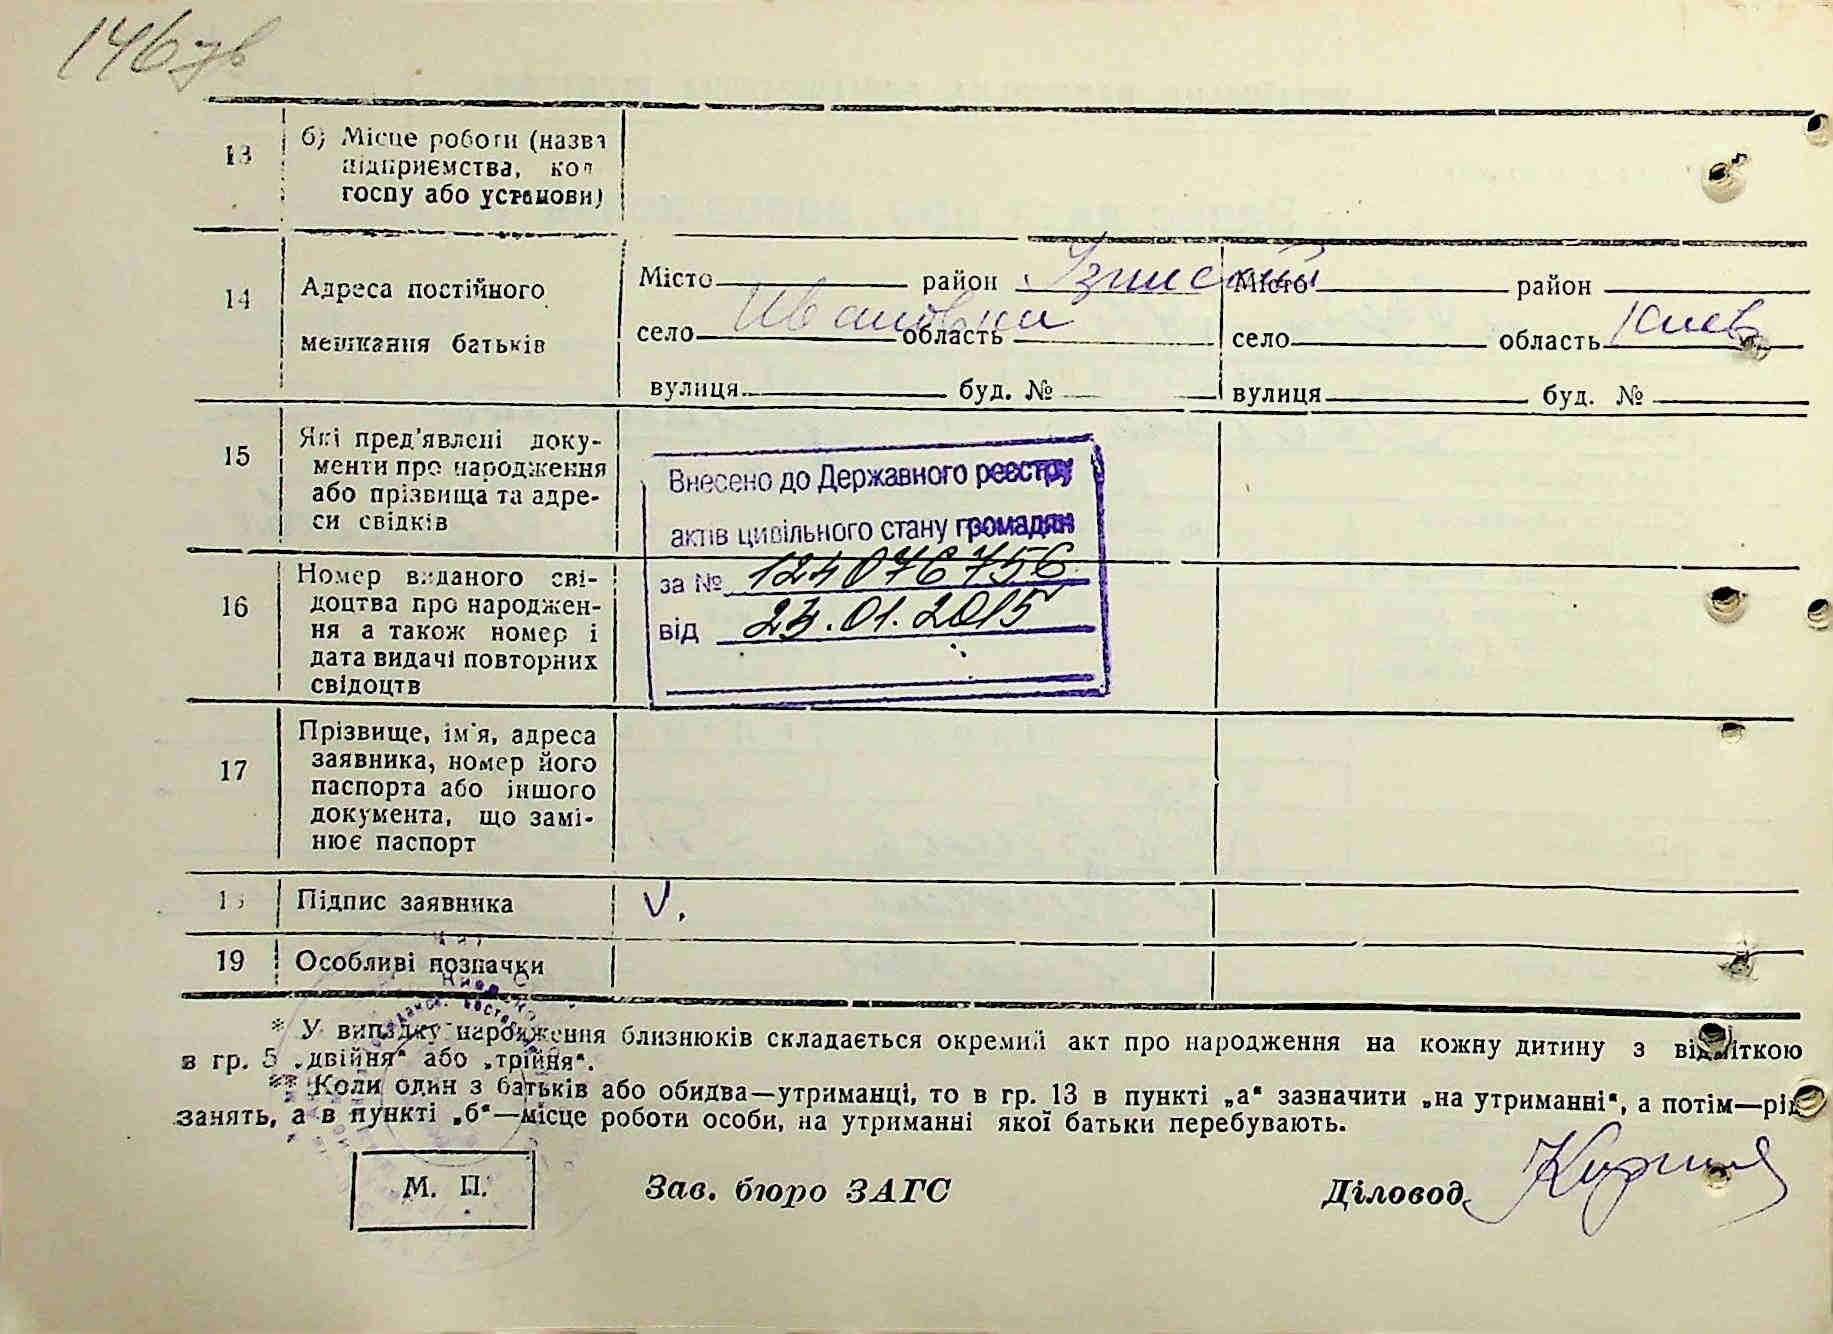 146 зв
13
б) Місце роботи (назва
підприємства, кол
госпу або установи)
14
Адреса постійного
мешкання батьків
Місто район
село Ивановки область
вулиця буд. №
Місто район
село область Киев
вулиця буд. №
15
Які пред'явлені доку-
менти про народження
або прізвища та адре-
си свідків
Внесено до Державного реєстру
актів цивільного стану громадян
за № 124076756
від 23.01.2015
16
Номер виданого сві-
доцтва про народжен-
ня а також номер і
дата видачі повторних
свідоцтв
17
Прізвище, ім'я, адреса
заявника, номер його
паспорта або іншого
документа, що замі-
нює паспорт
Підпис заявника
V.
19
Особливі позначки
* У випадку народження близнюків складається окремий акт про народження на кожну дитину з відміткою
в гр. 5 „двійня“ або „трійня“.
** Коли один з батьків або обидва—утриманці, то в гр. 13 в пункті „а“ зазначити „на утриманні“, а потім—рід
занять, а в пункті „б“—місце роботи особи, на утриманні якої батьки перебувають.
М. П.
Зав. бюро ЗАГС
Діловод